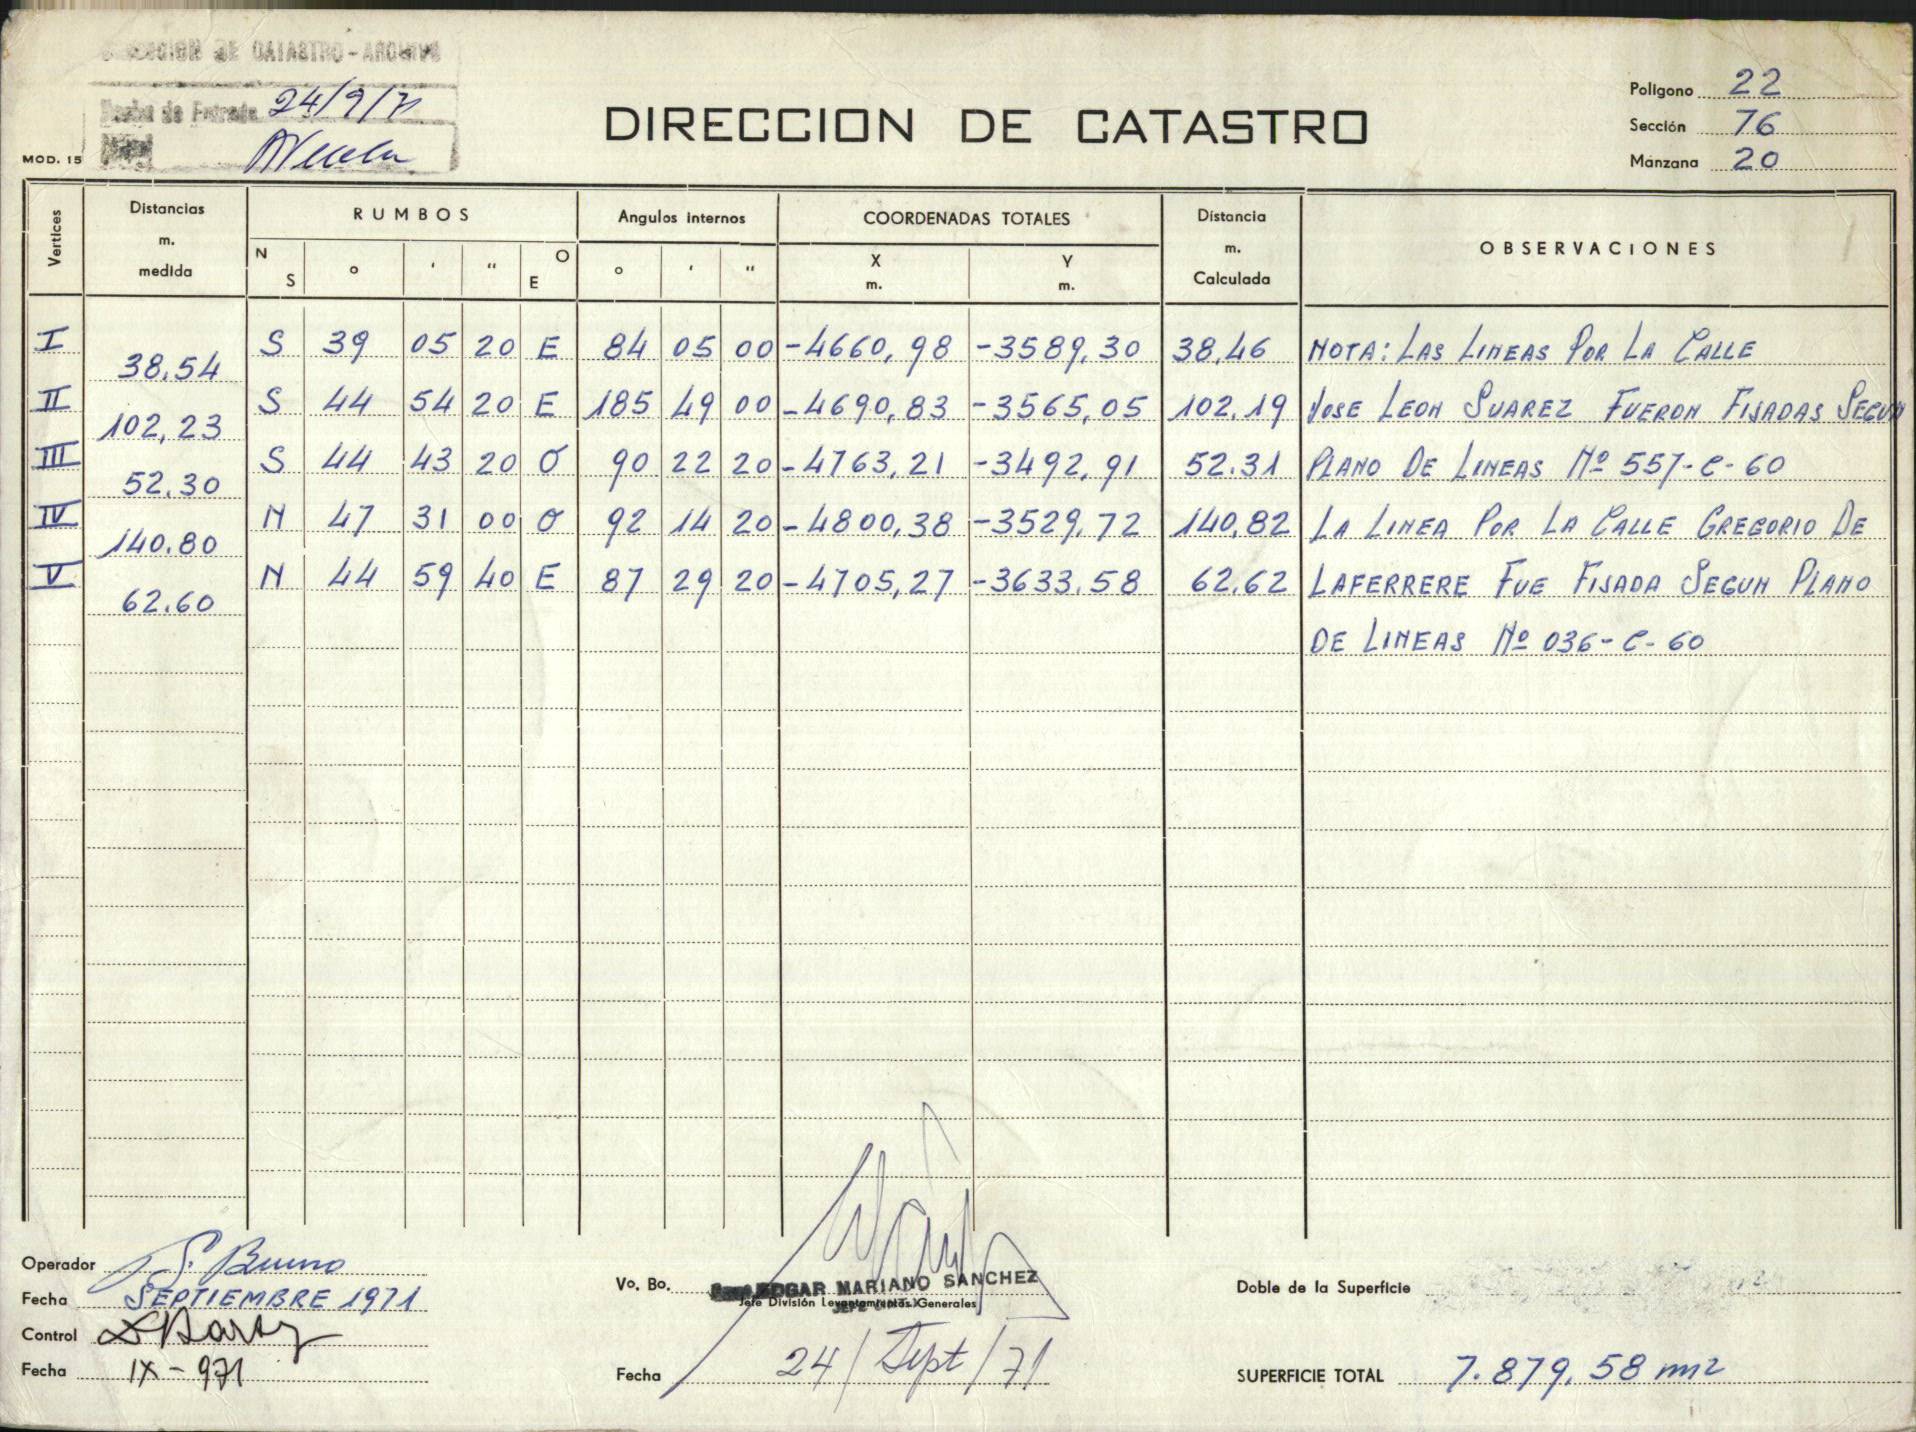 DIRECCION DE CATASTRO - ARCHIVO
Fecha de Entrada 24/9/71
MOD. 15
DIRECCION DE CATASTRO
Polígono 22
Sección 76
Manzana 20
Vertices Distancias m. medida RUMBOS Angulos internos COORDENADAS TOTALES Distancia m. Calculada OBSERVACIONES
N S ° ' " O E ° ' " X m. Y m.
I 38.54 S 39 05 20 E 84 05 00 -4660,98 -3589,30 38,46 NOTA: LAS LINEAS POR LA CALLE
II 102,23 S 44 54 20 E 185 49 00 -4690,83 -3565,05 102,19 JOSE LEON SUAREZ FUERON FIJADAS SEGUN
III 52.30 S 44 43 20 O 90 22 20 -4763,21 -3492,91 52.31 PLANO DE LINEAS Nº 557-C-60
IV 140.80 N 47 31 00 O 92 14 20 -4800,38 -3529,72 140,82 LA LINEA POR LA CALLE GREGORIO DE
V 62.60 N 44 59 40 E 87 29 20 -4705,27 -3633.58 62.62 LAFERRERE FUE FIJADA SEGUN PLANO
DE LINEAS Nº 036-C-60
Operador S. Bruno
Fecha SEPTIEMBRE 1971
Control
Fecha IX-971
Vo. Bo. EDGAR MARIANO SANCHEZ
Jefe División Levantamientos Generales
Fecha 24/Sept/71
Doble de la Superficie
SUPERFICIE TOTAL 7.879,58 m2